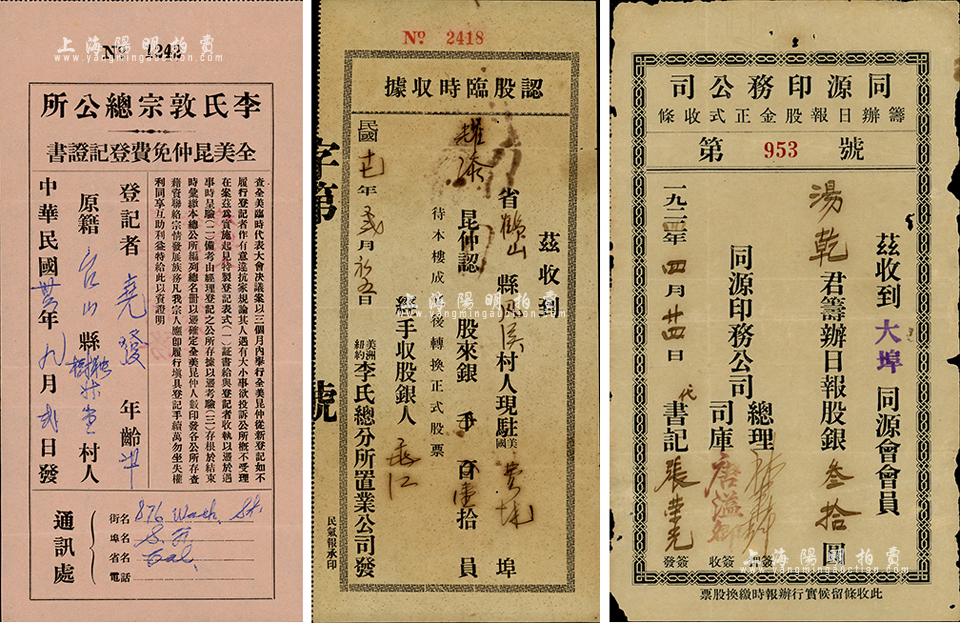 上海陽明拍賣
www.yangmingauction.com
Nº 1242
李氏敦宗總公所
全美昆仲免費登記證書
查全美臨時代表大會決議案以三個月內舉行全美昆仲從新登記如不
履行登記者作有意違抗家規論其人遇有大小事欲投訴公所概不受理
在案茲為實施起見特製登記表式（一）証書給與登記者收執以適於遇
事時呈驗（二）備考由經理登記之公所存據以邊考驗（三）存根於結束
時彙繳本總公所編列總名冊以邊確定全美昆仲人數印發各公所存查
藉資聯絡宗情發展族務凡我宗人應即履行填具登記手續萬勿坐失權
利同享互助利益特給此以資證明
登記者 堯發 年齡
原籍 台山 縣 村人
中華民國 年九月 日發
通訊處
街名 876 Wash. St.
埠名 S. F.
省名 Cal.
電話
Nº 2418
認股臨時收據
茲收到
省鶴山縣 村人現駐美國 埠
昆仲認 股來銀 百 拾 員
待本樓成立後轉換正式股票
經手收股銀人
美洲紐約李氏總分所置業公司發
民國 年 月 五日
民氣報承印
字第 號
上海陽明拍賣
www.yangmingauction.com
同源印務公司
籌辦日報股金正式收條
第 953 號
茲收到 大埠 同源會會員
湯乾 君籌辦日報股銀 叁拾 圓
同源印務公司 總理 簽押
司庫 唐 簽收
代 書記 張 簽發
一九二 年四月廿四日
此收條留候實行辦報時繳換股票
上海陽明拍賣
www.yangmingauction.com